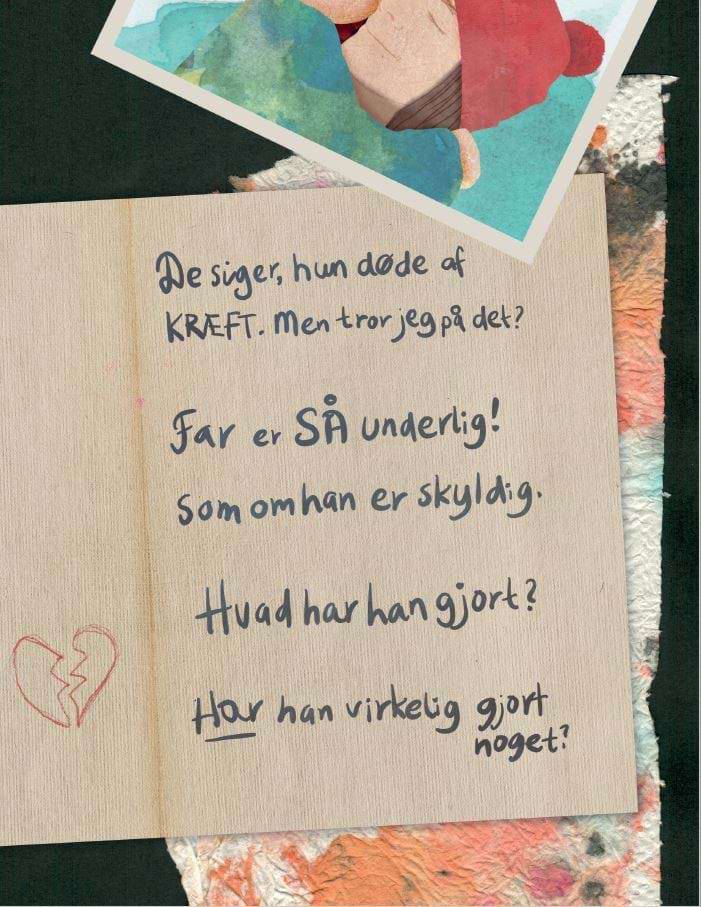 De siger, hun døde af
KRÆFT. Men tror jeg på det?
Far er SÅ underlig!
Som om han er skyldig.
Hvad har han gjort?
Har han virkelig gjort
noget?